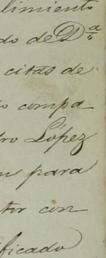 limiento
do de D.a
citas de
compa
ro Lopez
para
tir con
ificado